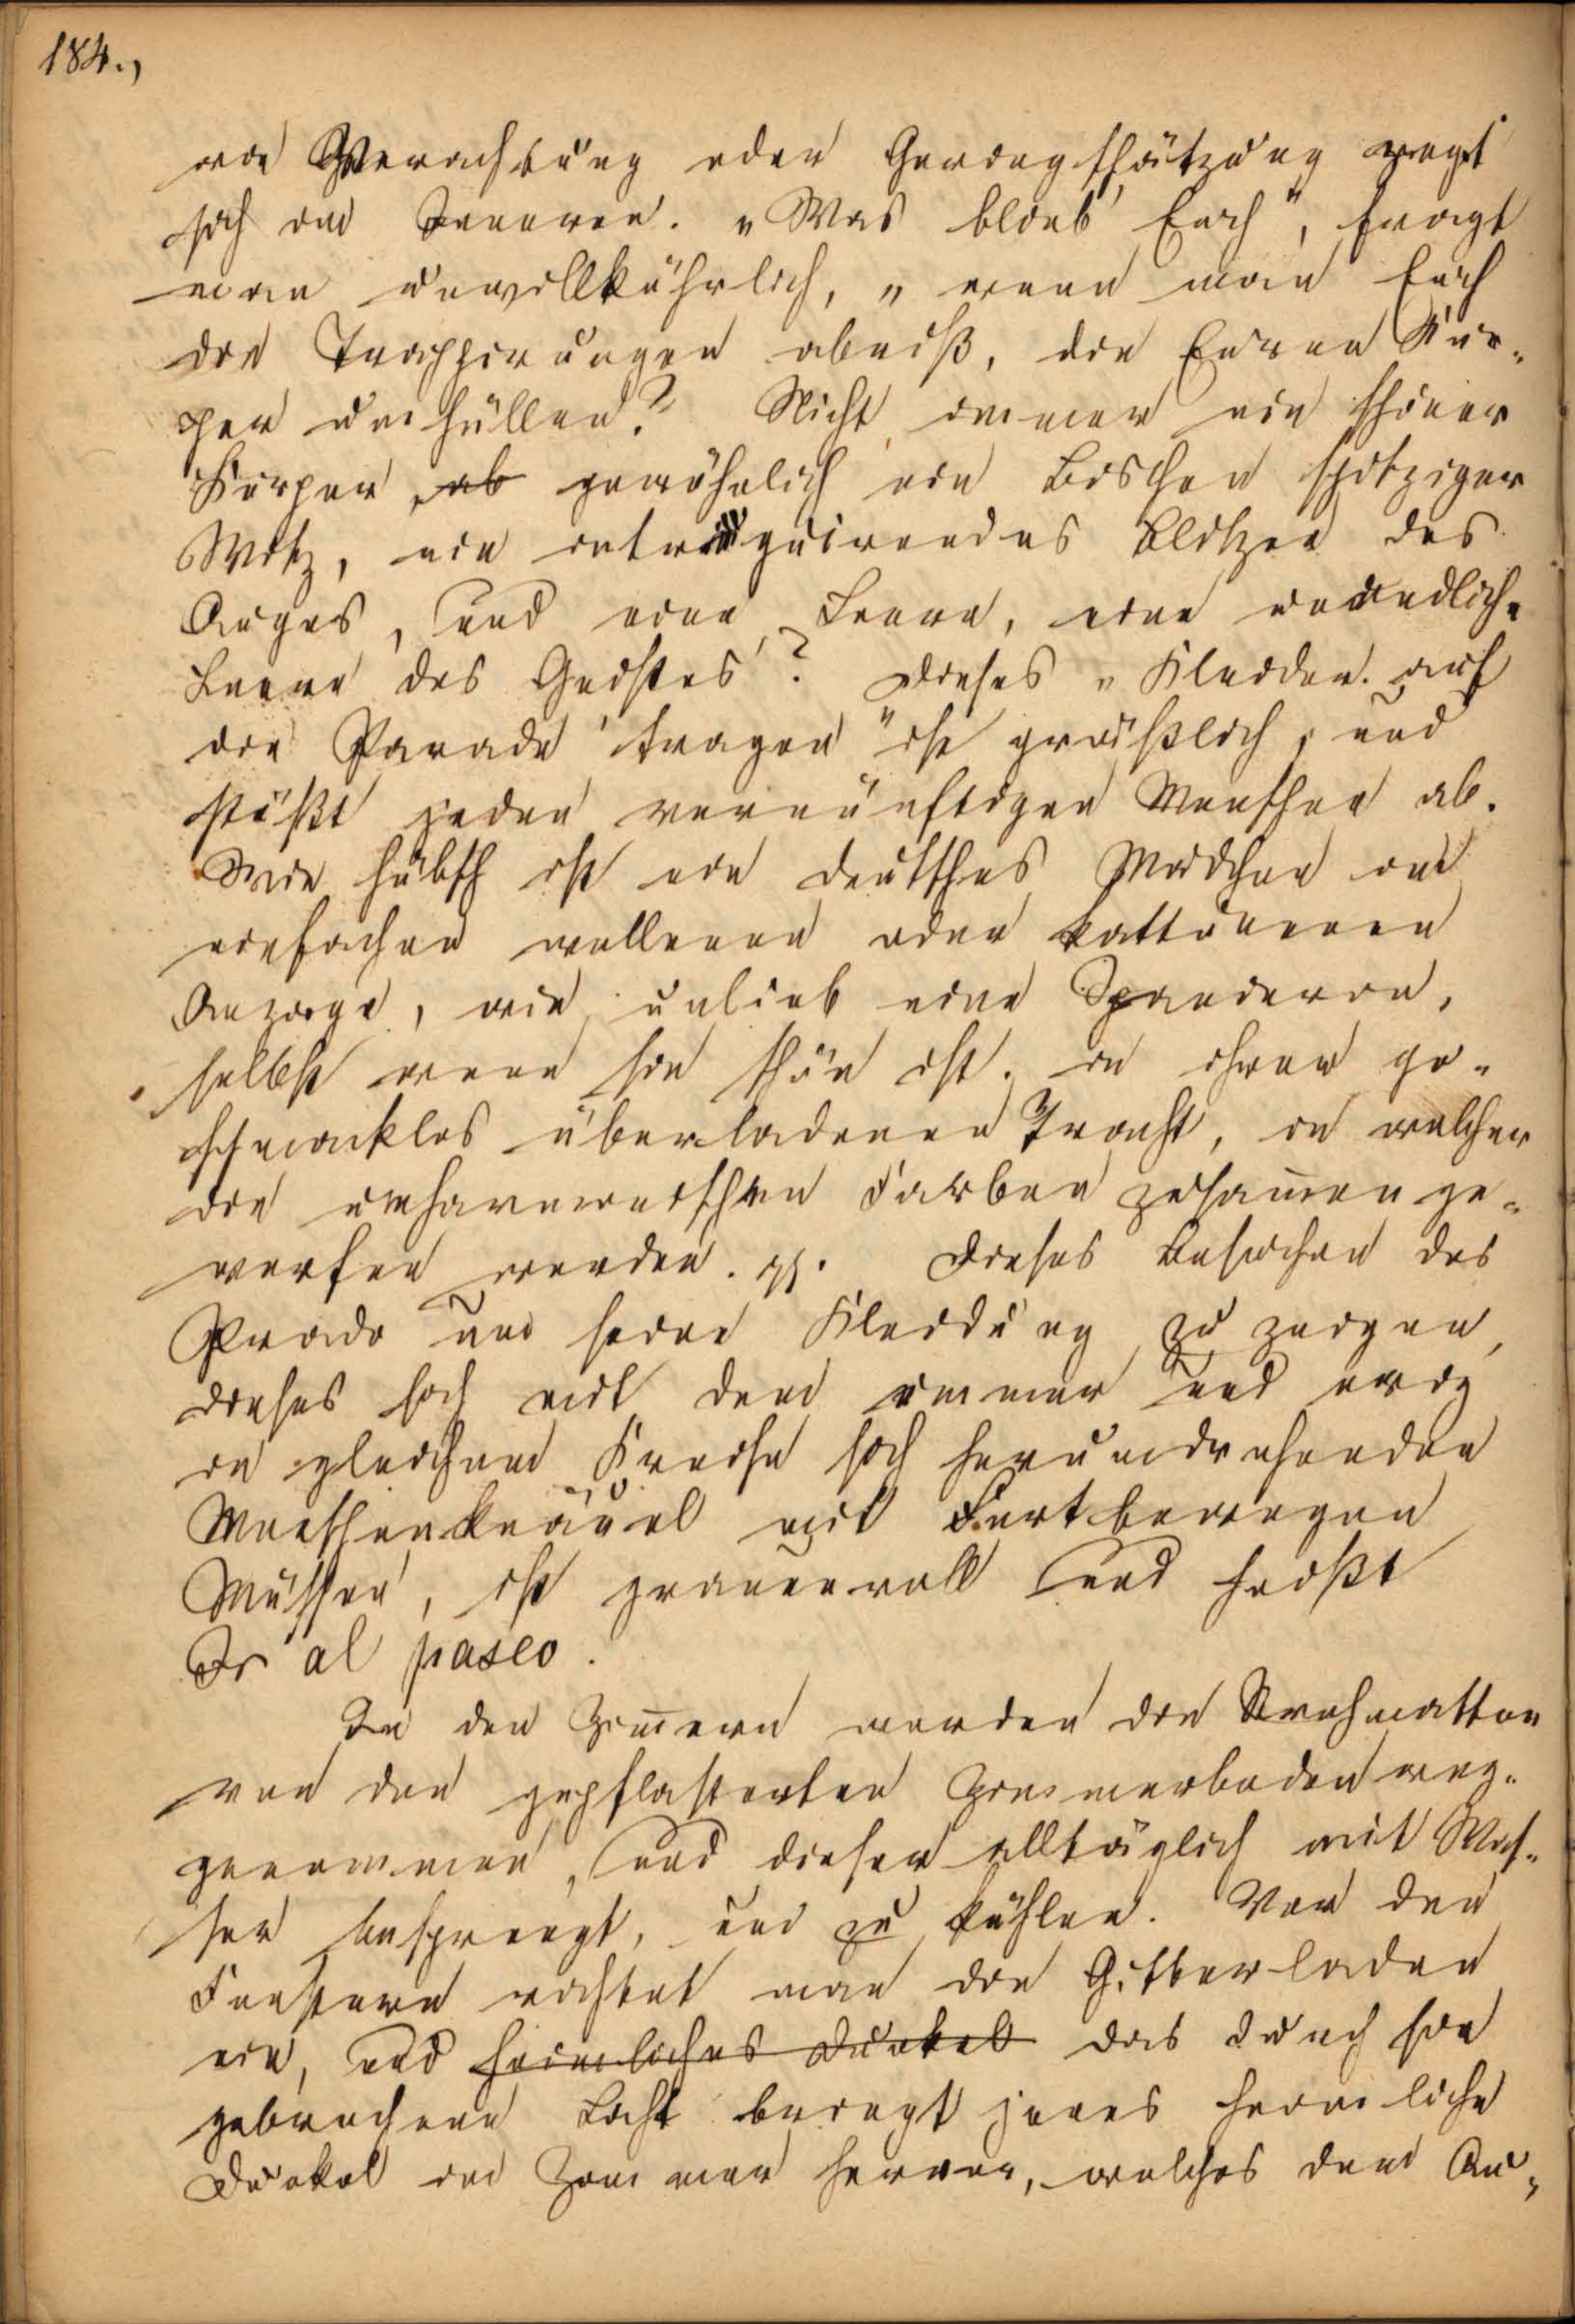 184.,
wie Verachtung oder Geringschätzung regt
sich im Inneren. „Was bleibt Euch", fragt
man unwillkührlich, „wenn man Euch
die Trappirungen abriß, die Euren Kör-
per umhüllen? Nicht immer ein schöner
Körper, ab gewöhnlich ein Bischen spitziger
Witz, ein intriguirendes Blitzen des
Auges, und eine Leere, eine unendliche
Leere des Geistes? Dieses „Kleider auf
die Parade tragen" ist gräßlich, und
stößt jeden vernünftigen Menschen ab.
Wie hübsch ist ein deutsches Mädchen im
einfachen wollenen oder kattunenen
Anzuge, wie unlieb eine Spanierin,
selbst wenn sie schön ist, in ihrer ge-
schmacklos überladenen Tracht, in welcher
die unharmonischen Farben zusammenge-
worfen werden. Dieses Besuchen des
Prado um seine Kleidung zu zeigen,
dieses sich mit dem immer und ewig
in gleichem Kreise sich herumdrehenden
Menschenknäuel mit Fortbewegen
Müssen, ist grauenvoll und heißt
Ir al paseo.
In den Zimmern werden die Strohmatten
von den gepflasterten Zimmerboden weg-
genommen, und dieser alltäglich mit Was-
ser besprengt, um zu kühlen. Vor den
Fenstern richtet man die Gitterladen
ein, und heimliches Dunkel das durch sie
gebrochene Licht bringt jenes heimliche
Dunkel im Zimmer hervor, welches dem Au-